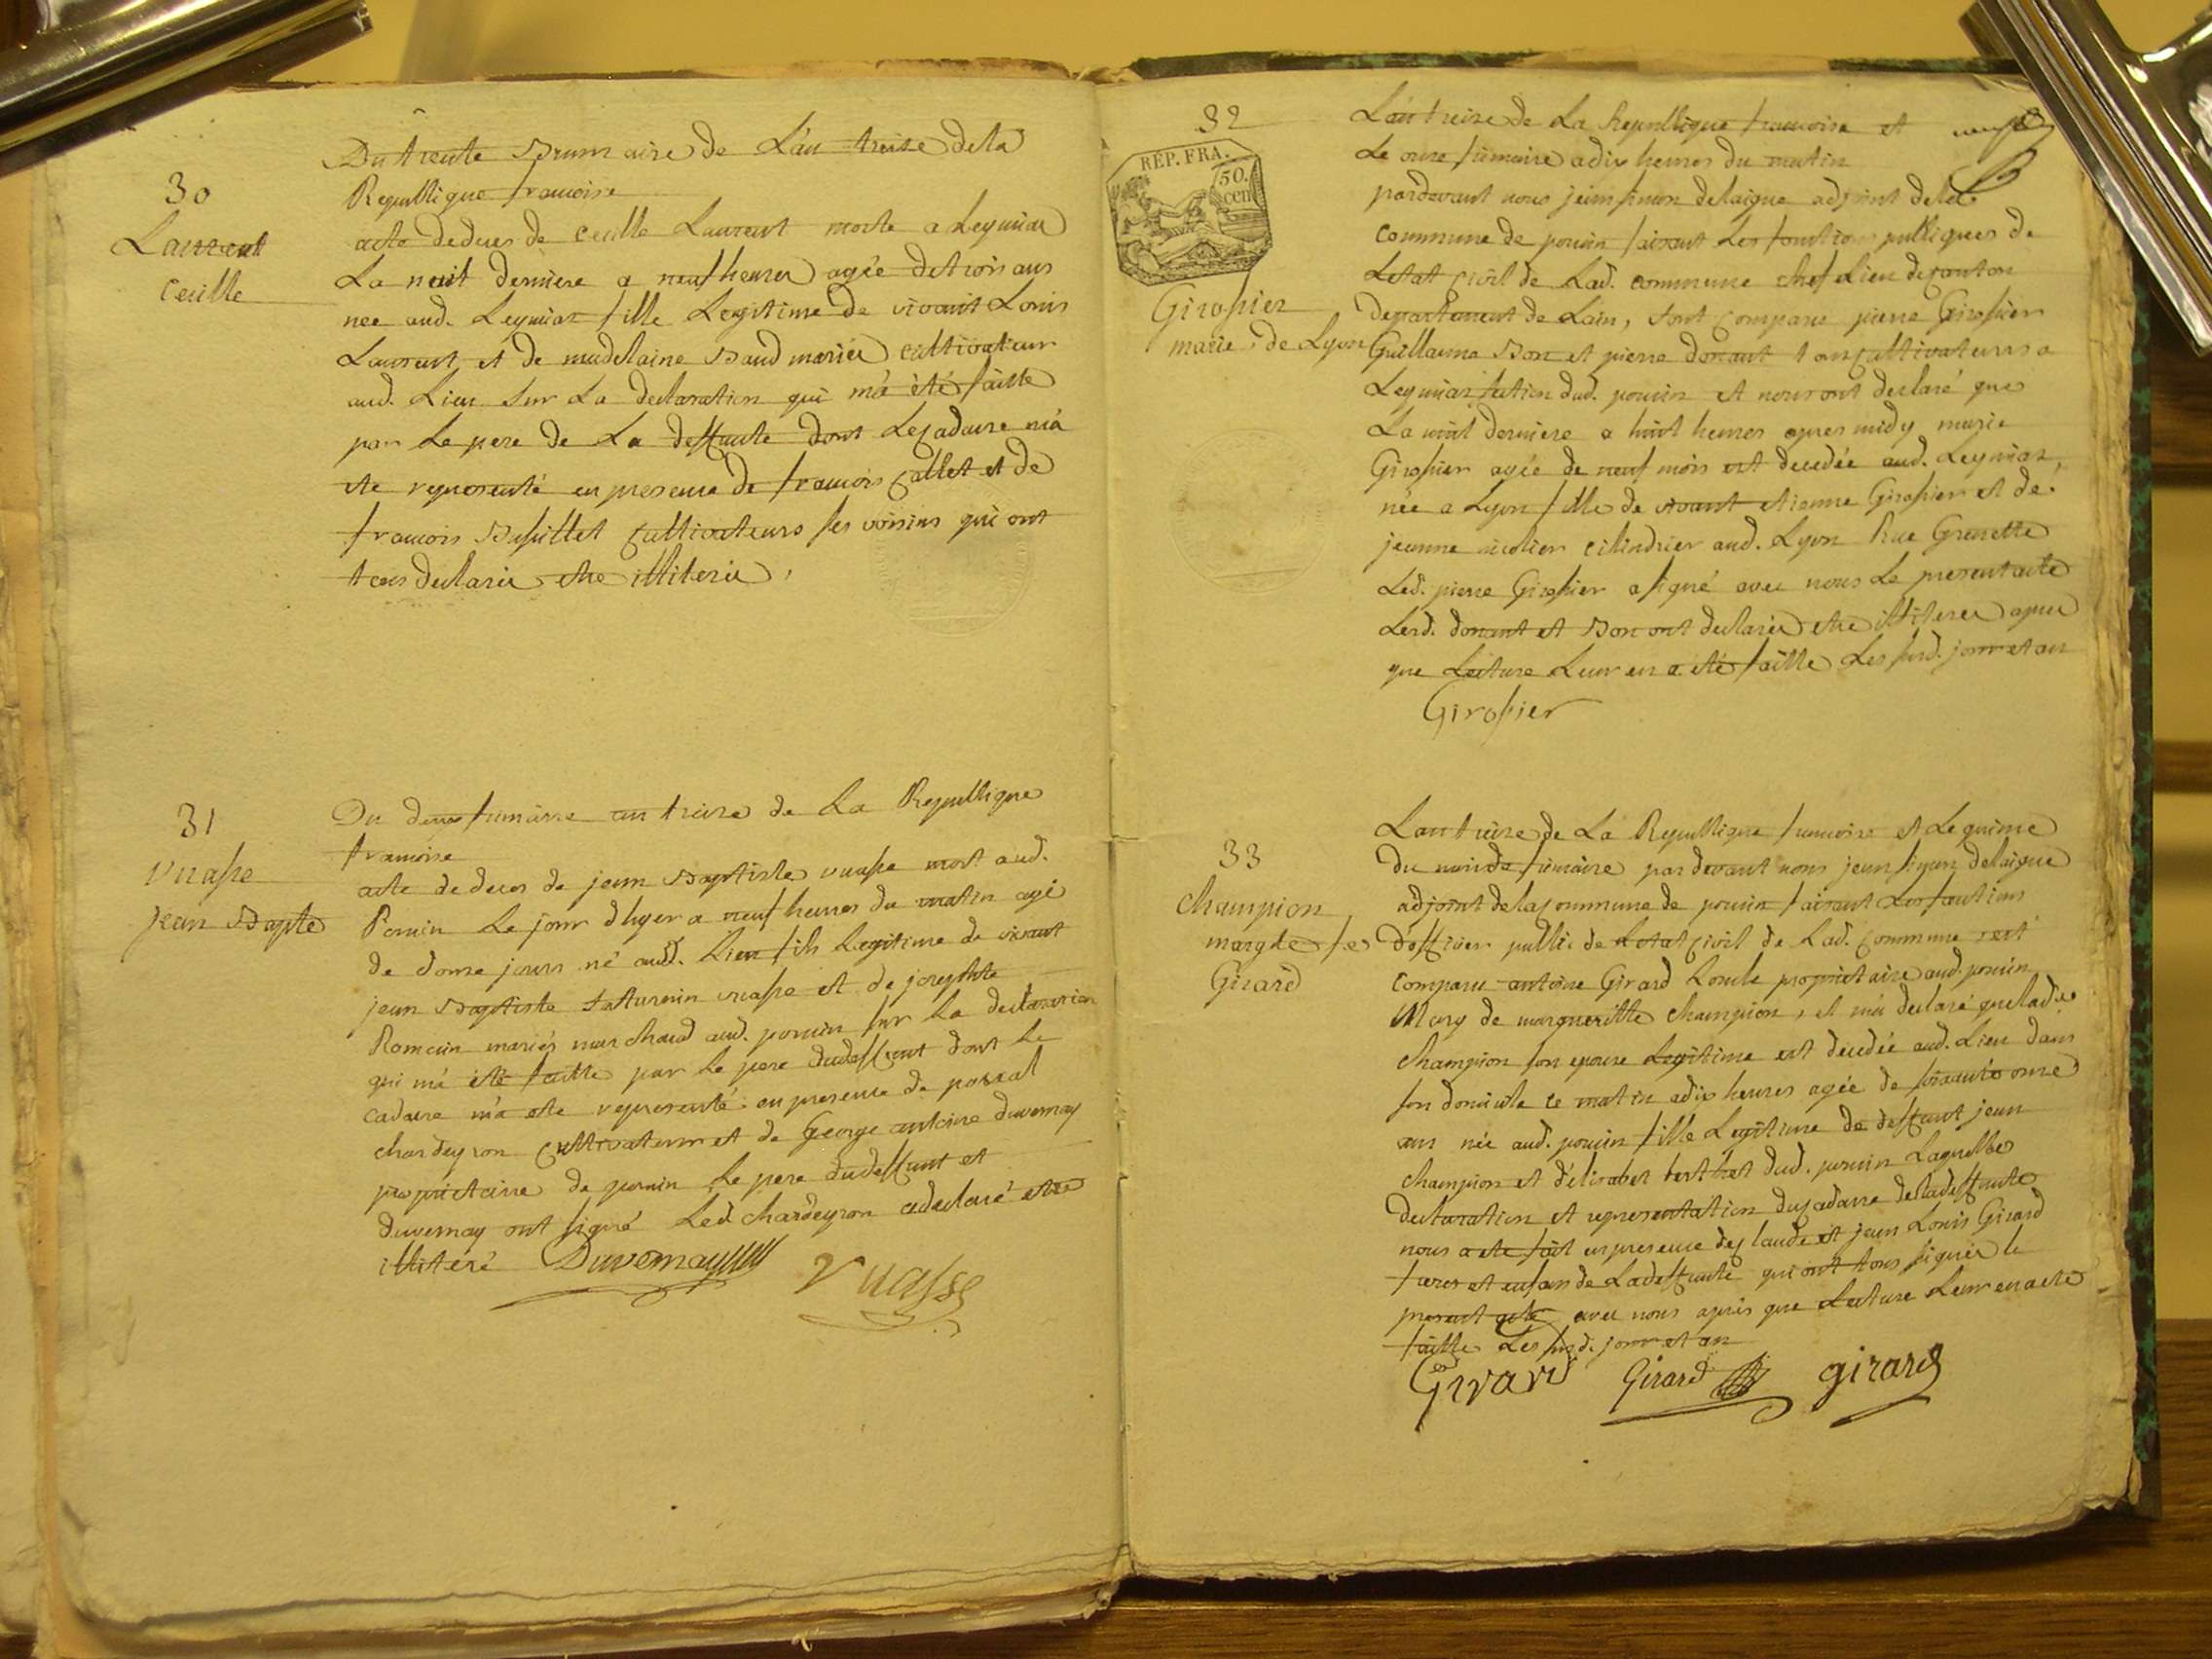 30
Laurent
Cecille
Du trente Brumaire de L'an treise dela
Republique francoise
acte de deces de Cecille Laurent morte a Leymiat
La nuit derniere a neuf heures agée de trois ans
nee aud. Leymiat fille Legitime de vivant Louis
Laurent et de madelaine Baud mariés cultivateur
aud. Lieu sur La declaration qui m'a èté faitte
par Le pere de La deffunte dont Le cadavre m'a
ete representé en presence de francois callet et de
francois Busillet cultivateurs ses voisins qui ont
tous declarés etre illiterés.
31
vuasse
jean Bapte
Du deux frimaire an treise de La Republique
francoise
acte de deces de jean Baptiste vuasse mort aud.
Poncin Le jour d'hyer a neuf heures du matin agé
de douse jours né aud. Lieu fils Legitime de vivant
jean Baptiste Saturnin vuasse et de josephte
Romain mariés marchand aud. poncin sur La declaration
qui m'a èté faitte par Le pere dudeffunt dont Le
cadavre m'a ete representé en presence de pascal
chardeyron cultivateur et de George antoine duvernay
proprietaire de poncin Le pere dudeffunt et
duvernay ont signé Led. chardeyron adeclaré etre
illiteré Duvernay Vuasse
32
REP. FRA.
50.
cen
Girossier
marie, de Lyon
L'an treise de La Republique francoise et
Le onse frimaire a dix heures du matin
pardevant nous jean simon delaigue adjoint dela
Commune de poncin faisant Les fonctions publiques de
Letat civil de Lad. commune chef Lieu de canton
departement de Lain, sont comparu pierre Girossier
Guillaume Bon et pierre donant tous cultivateurs a
Leymiat section dud. poncin et nous ont declaré que
La nuit derniere a huit heures apres midy marie
Girossier agée de neuf mois est decedée aud. Leymiat,
née a Lyon fille de vivant etienne Girossier et de
jeanne nicolier cilindrier aud. Lyon Rue Grenette
Led. pierre Girossier a signé avec nous Le present acte
Lesd. donant et Bon ont declarés etre illiterés apres
que Lecture Leur en a été faitte Les susd. jour et an
Girossier
33
Champion
margte fe
Girard
L'an treise de La Republique francoise et Le quinse
du mois de frimaire par devant nous jean simon delaigue
adjoint dela commune de poncin faisant Les fonctions
d'officier public de Letat civil de Lad. commune sest
comparu antoine Girard Loncle proprietaire aud. poncin
Mary de margueritte Champion, et m'a declaré que lad.
Champion son epouse Legitime est decedée aud. Lieu dans
son domicile ce matin adix heures agée de soixante onse
ans née aud. poncin fille Legitime de deffunt jean
Champion et d'élisabet berthet dud. poncin Laquelle
declaration et representation du cadavre deladeffunte
nous a ete fait en presence de claude et jean Louis Girard
freres et enfans de Ladeffunte qui ont tous signés le
present acte avec nous après que Lecture Leur en a eté
faitte Les susd. jour et an
Girard Girard girard